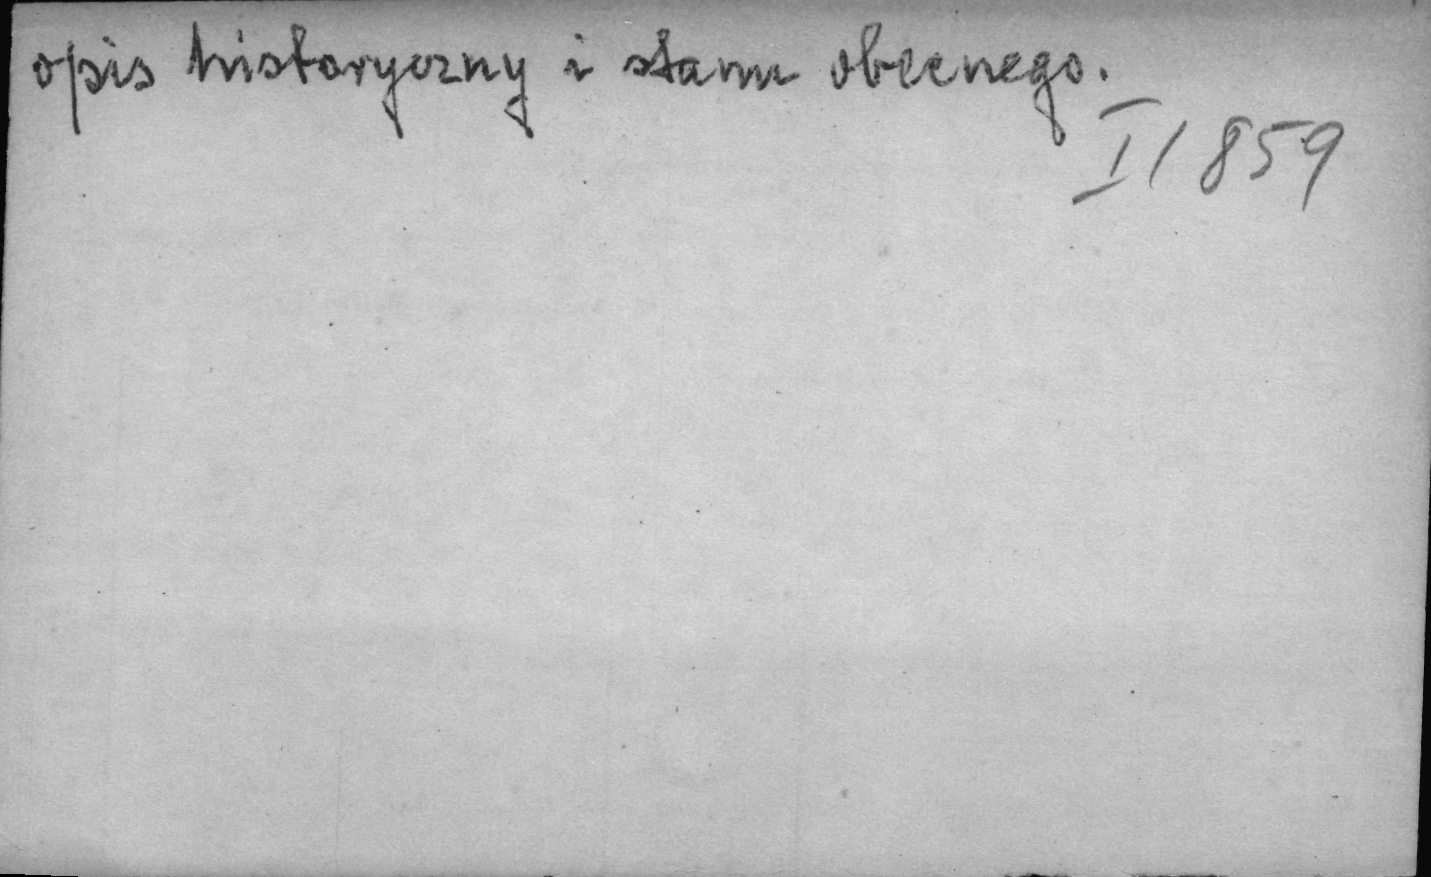 opis historyczny i stanu obecnego.
I/859